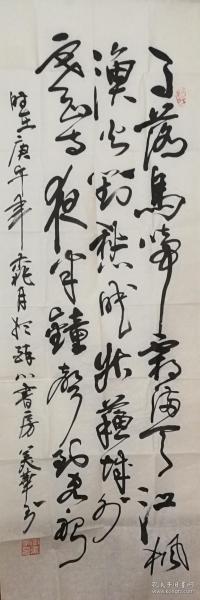 月落烏啼霜滿天江楓
漁火對愁眠姑蘇城外
寒山寺夜半鐘聲到客船
時在庚午年桃月於心書房美華书